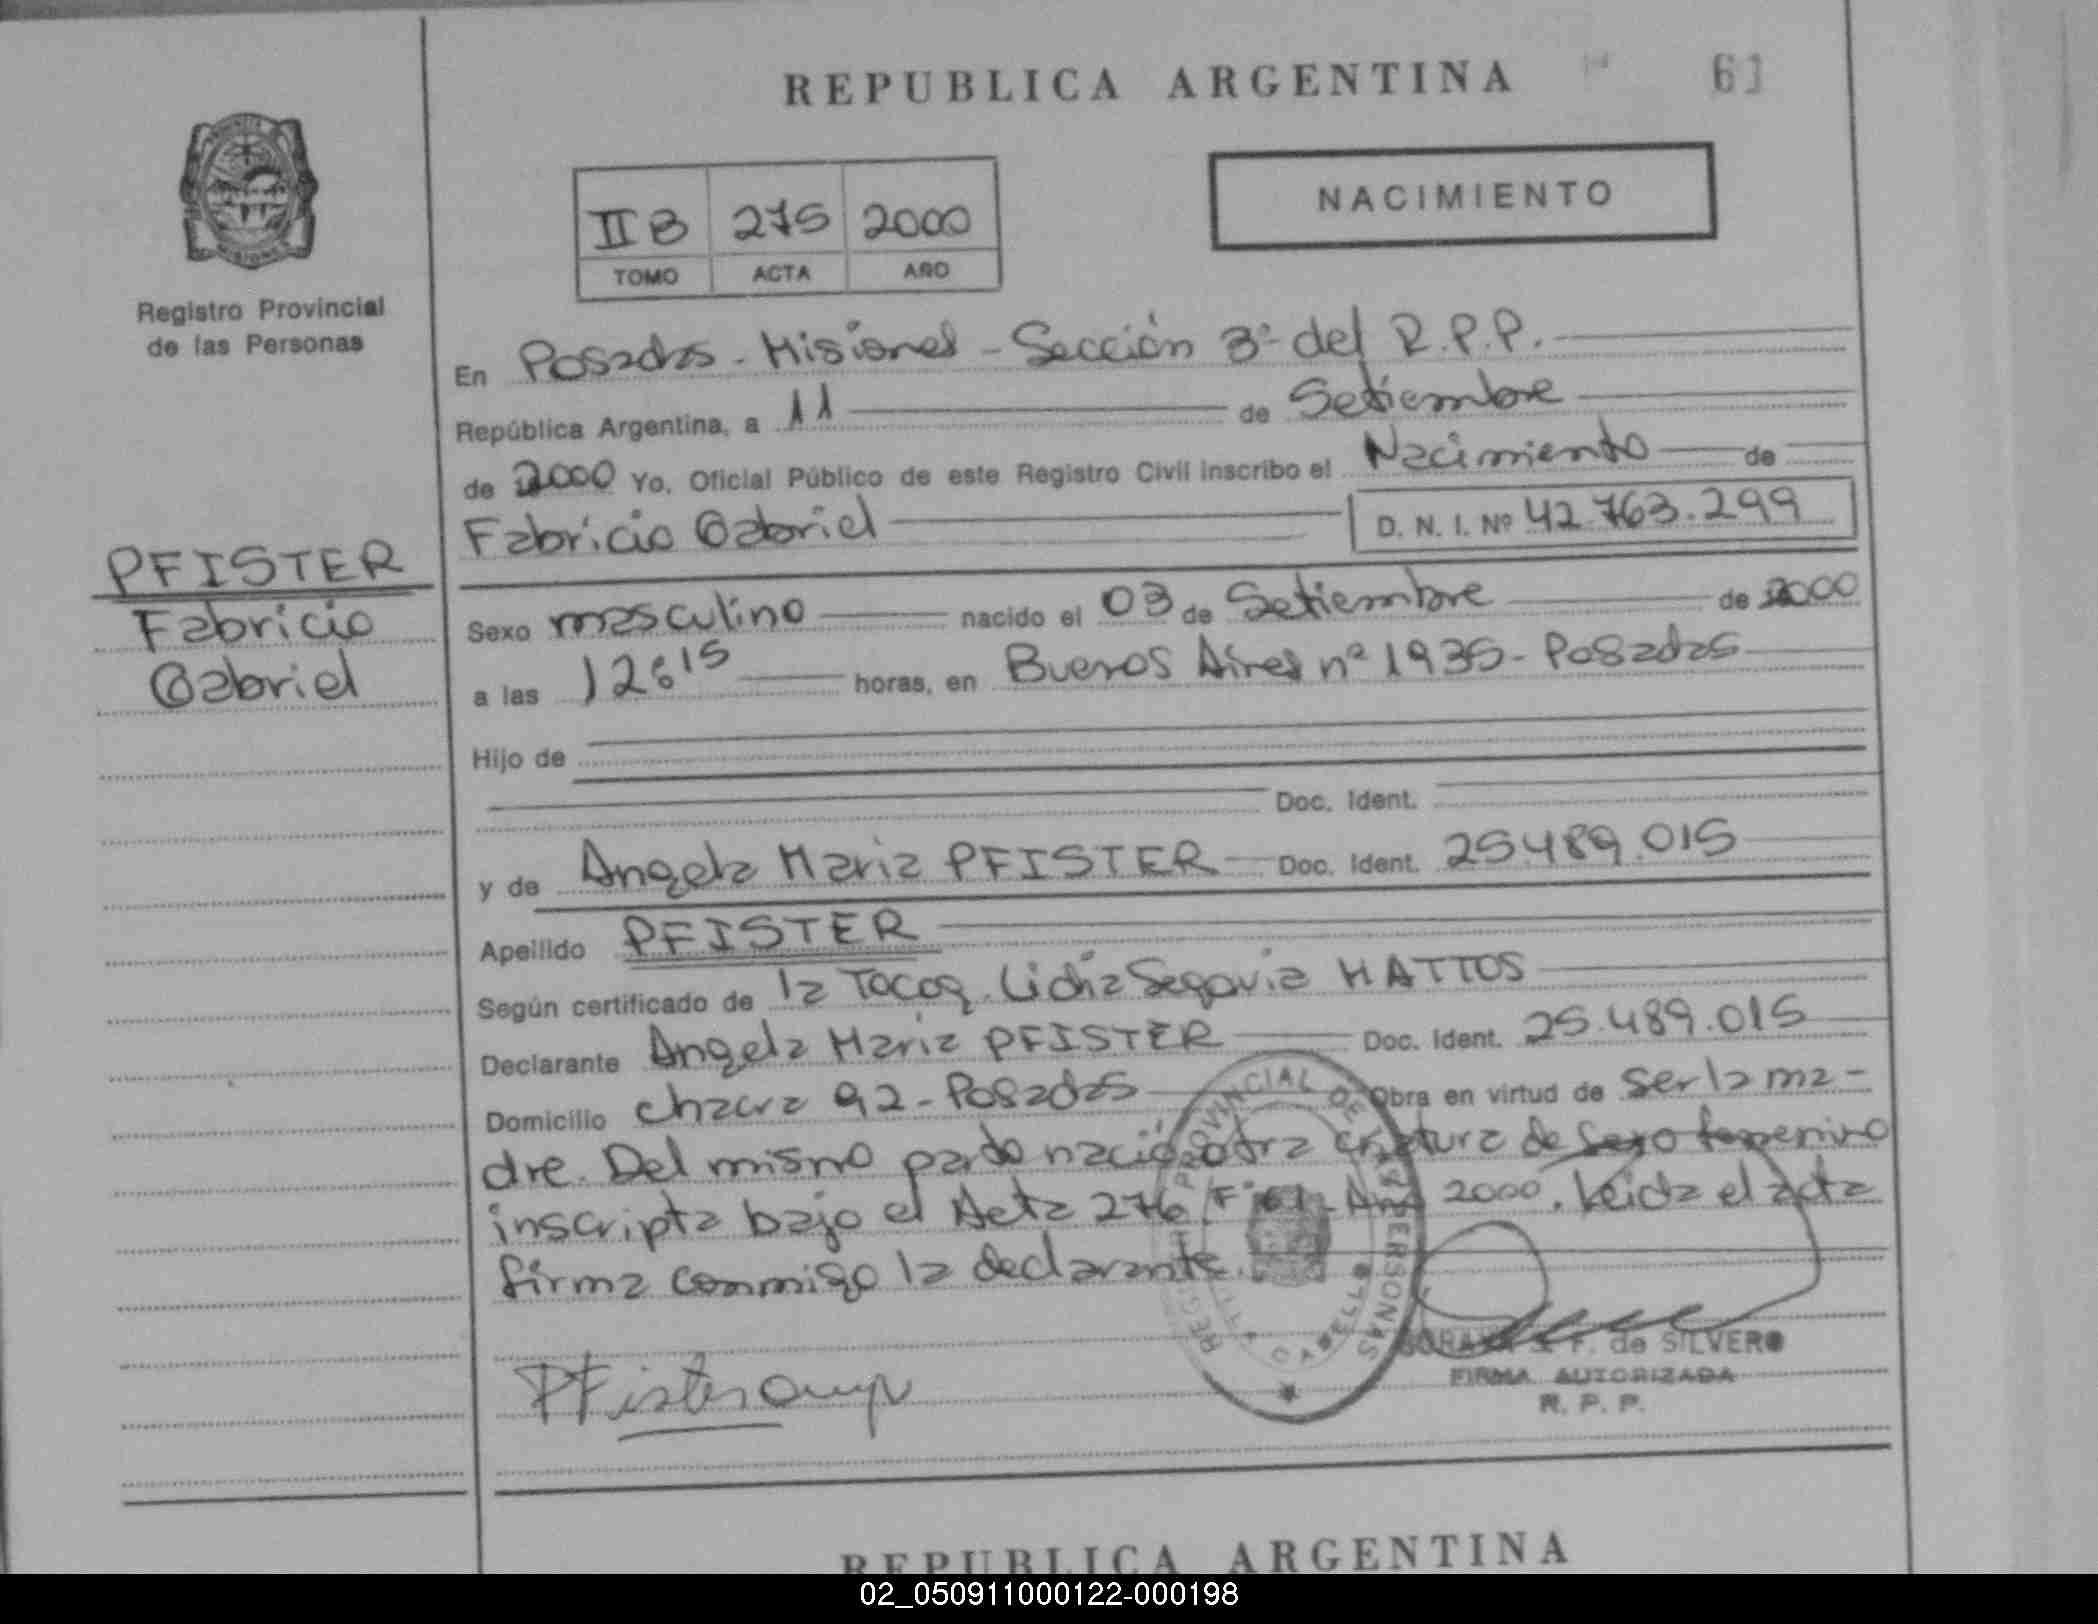 REPUBLICA ARGENTINA
61
NACIMIENTO
II B 275 2000
TOMO ACTA AÑO
Registro Provincial
de las Personas
En Posadas - Misiones - Sección 3ª del R.P.P.
República Argentina, a 11 de Setiembre
de 2000 Yo, Oficial Público de este Registro Civil inscribo el Nacimiento de
Fabricio Gabriel D. N. I. Nº 42.763.299
PFISTER
Fabricio
Gabriel
Sexo masculino nacido el 03 de Setiembre de 2000
a las 12:15 horas, en Buenos Aires nº 1935 - Posadas
Hijo de
Doc. Ident.
y de Angela Maria PFISTER Doc. Ident. 25.489.015
Apellido PFISTER
Según certificado de la Tocog. Lidia Segovia MATTOS
Declarante Angela Maria PFISTER Doc. Ident. 25.489.015
Domicilio chacra 92 - Posadas Obra en virtud de ser la ma-
dre. Del mismo parto nació otra criatura de sexo femenino
inscripta bajo el Acta 276 Fº 61 - Año 2000. Leida el acta
firma conmigo la declarante.
REGISTRO PROVINCIAL DE LAS PERSONAS
Pfister
de SILVERO
FIRMA AUTORIZADA
R. P. P.
REPUBLICA ARGENTINA
02_050911000122-000198